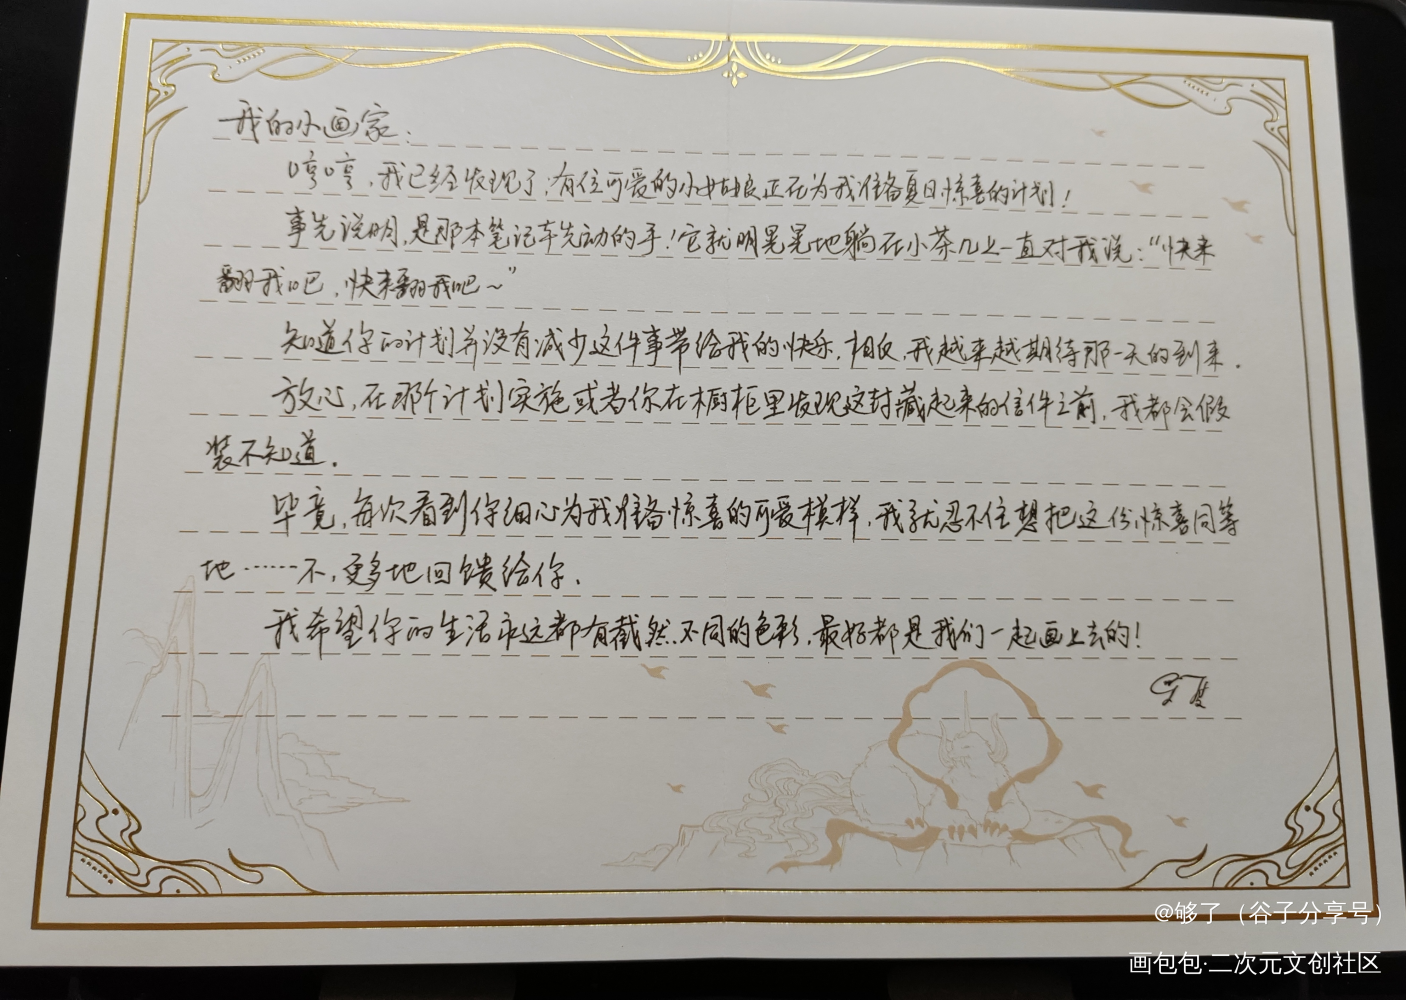 我的小画家：
哼哼，我已经发现了，有位可爱的小姑娘正在为我准备夏日惊喜的计划！
事先说明，是那本笔记本先动的手！它就明晃晃地躺在小茶几上一直对我说：“快来
翻我吧，快来翻我吧～”
知道你的计划并没有减少这件事带给我的快乐，相反，我越来越期待那一天的到来．
放心，在那个计划实施或者你在橱柜里发现这封藏起来的信件之前，我都会假
装不知道．
毕竟，每次看到你细心为我准备惊喜的可爱模样，我就忍不住想把这份惊喜同等
地……不，更多地回馈给你．
我希望你的生活永远都有截然不同的色彩，最好都是我们一起画上去的！
@够了（谷子分享号）
画包包·二次元文创社区